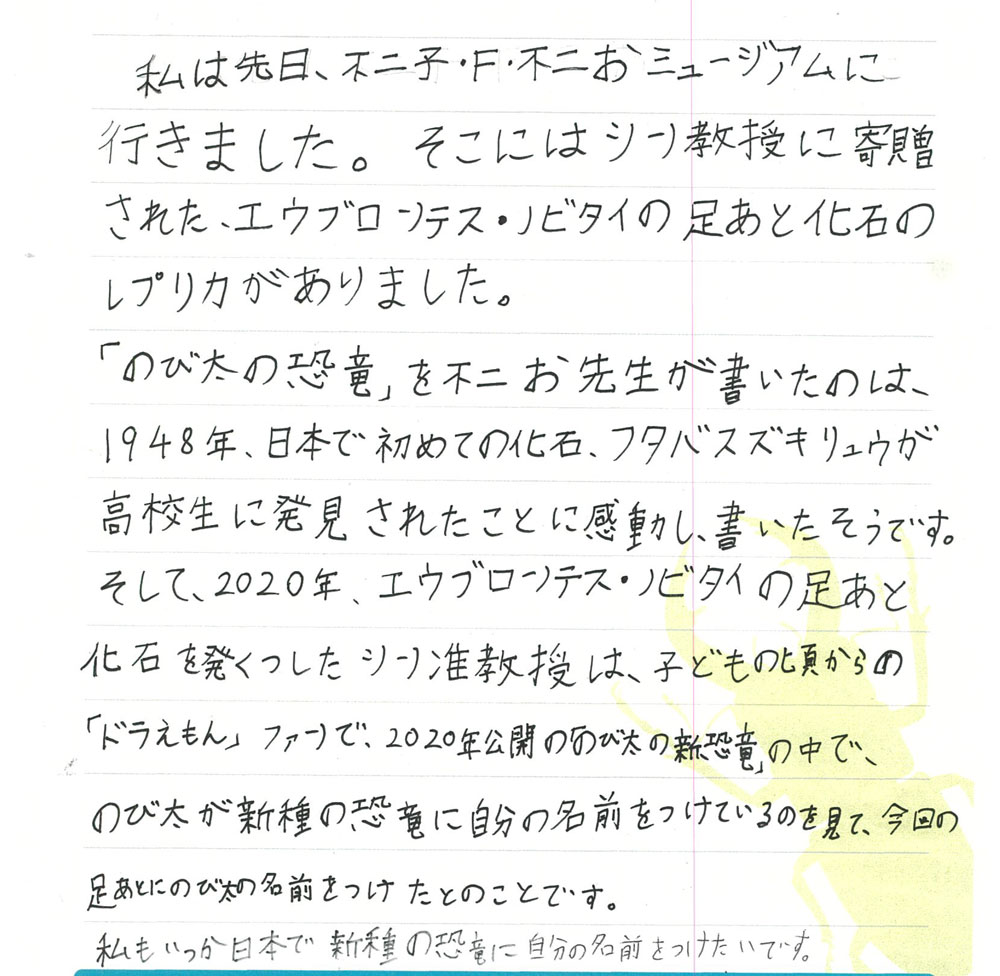 私は先日、不二子・F・不二おミュージアムに
行きました。そこにはシン教授に寄贈
された、エウブロンテス・ノビタイの足あと化石の
レプリカがありました。
「のび太の恐竜」を不二お先生が書いたのは、
1948年、日本で初めての化石、フタバスズキリュウが
高校生に発見されたことに感動し、書いたそうです。
そして、2020年、エウブロンテス・ノビタイの足あと
化石を発くつしたシン准教授は、子どもの頃からの
「ドラえもん」ファンで、2020年公開の「のび太の新恐竜」の中で、
のび太が新種の恐竜に自分の名前をつけているのを見て、今回の
足あとにのび太の名前をつけたとのことです。
私もいつか日本で新種の恐竜に自分の名前をつけたいです。